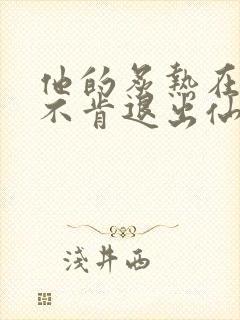 他的炙热在
不肯退出仙
浅井西